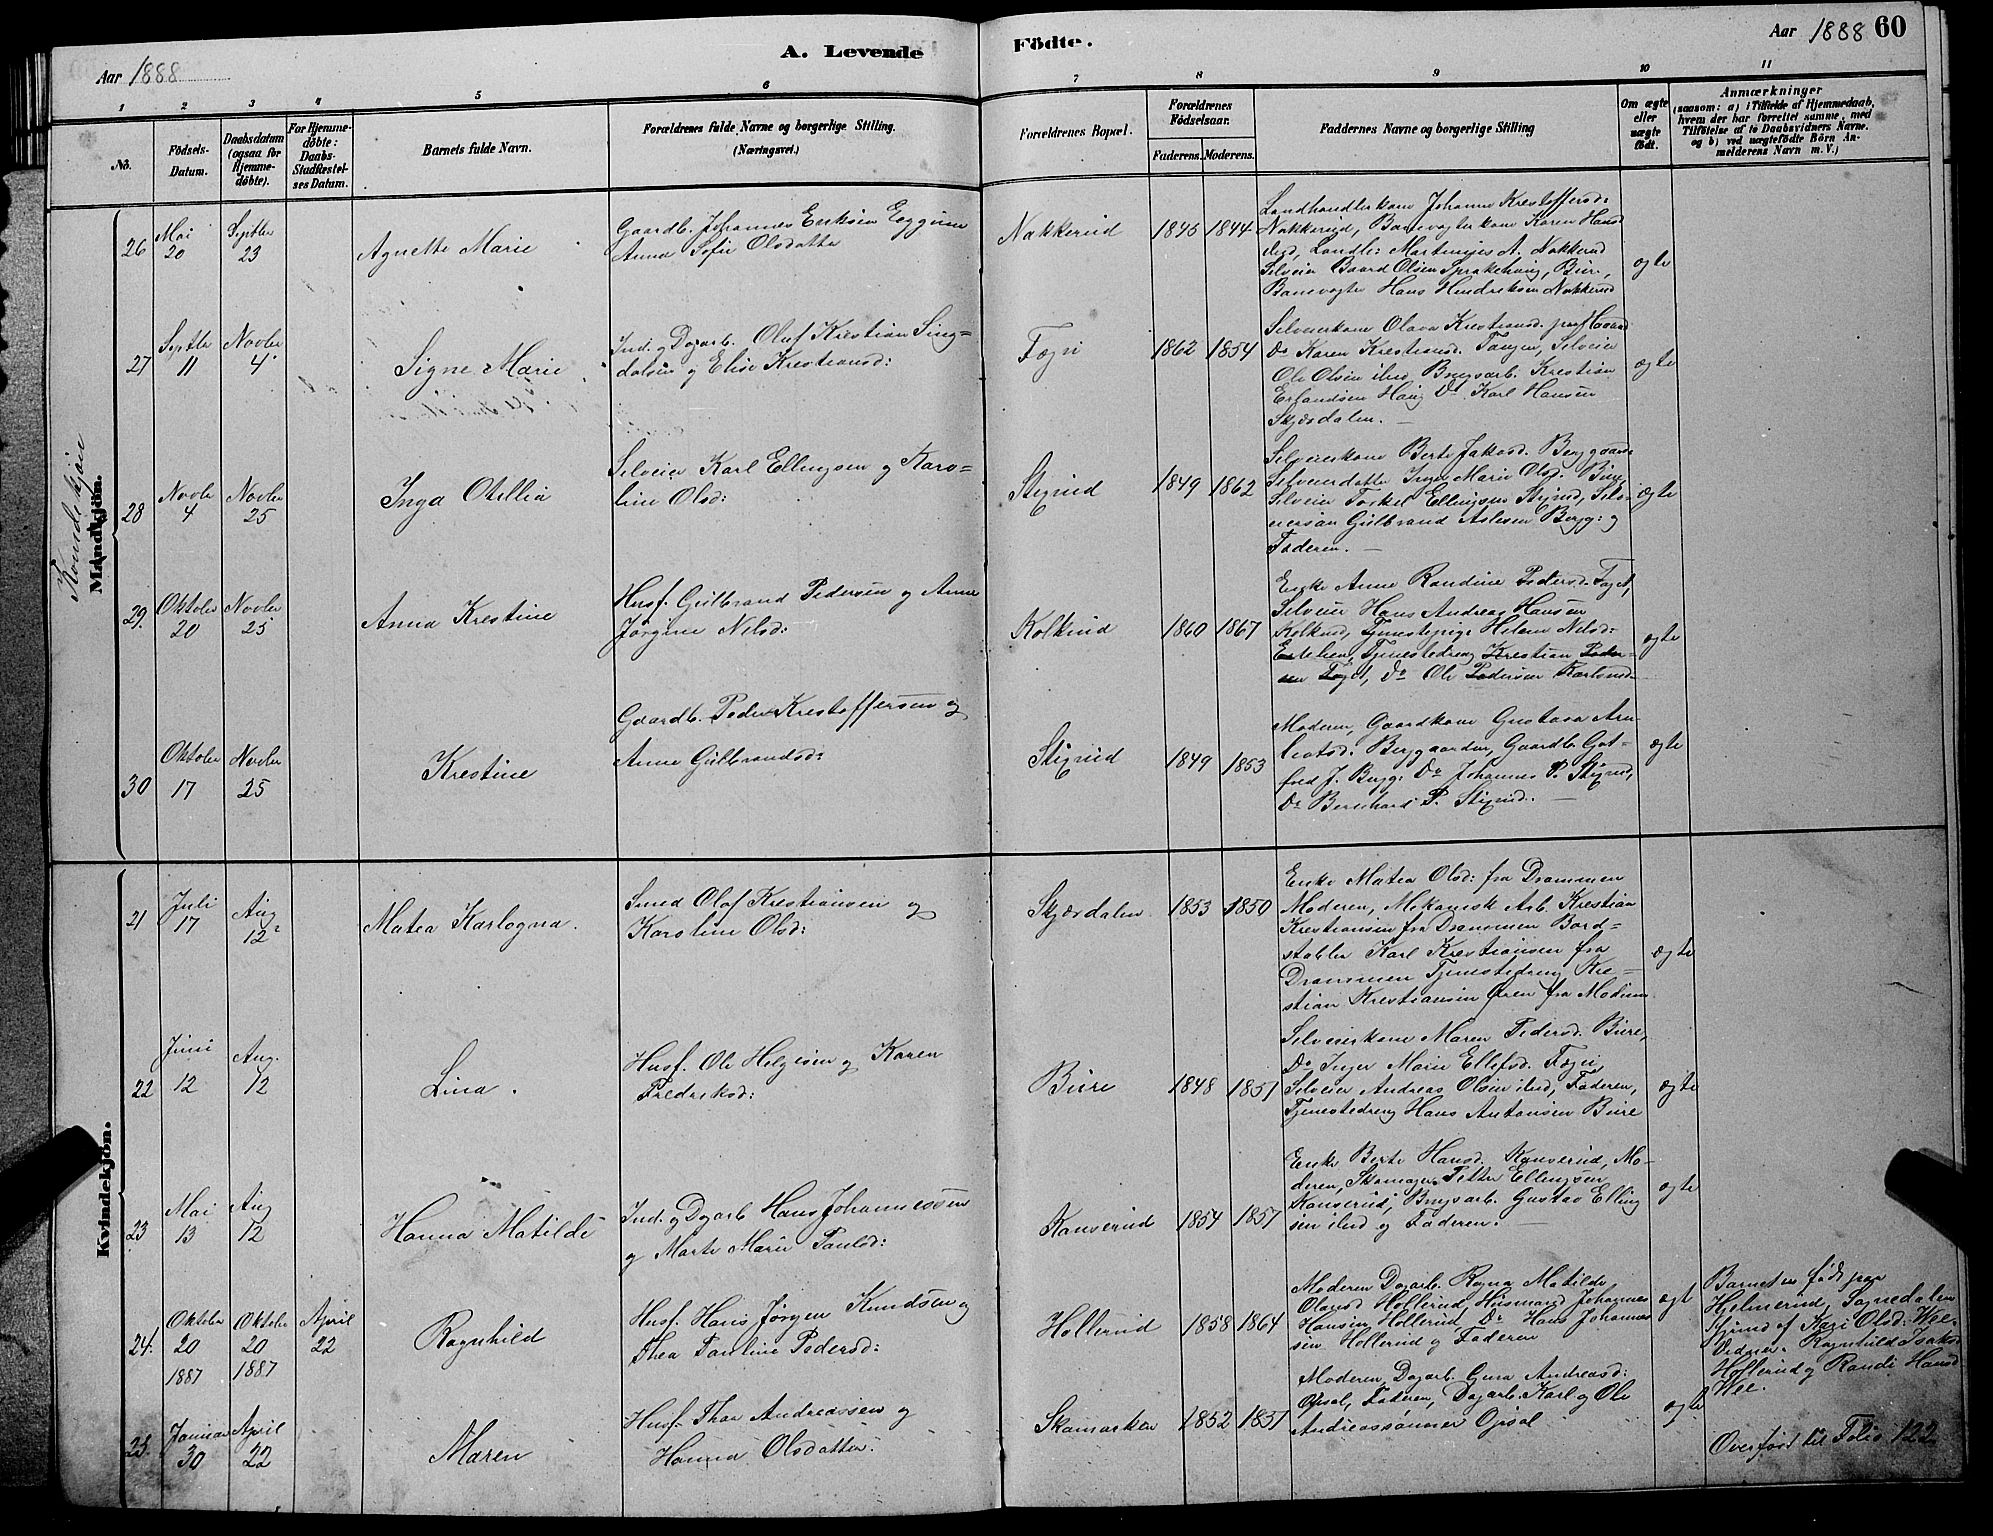 Aar 1888
A. Levende
Födte.
Aar 1888 60
1 2 3 4 5 6 7 8 9 10 11
No.
Födsels-
Datum.
Daabsdatum
(ogsaa for
Hjemme-
døbte).
For Hjemme-
döbte:
Daabs-
Stadfæstel-
ses Datum.
Barnets fulde Navn.
Forældrenes fulde Navne og borgerlige Stilling.
(Næringsvei.)
Forældrenes Bopæl.
Forældrenes
Födselsaar.
Faderens. Moderens.
Faddernes Navne og borgerlige Stilling
Om ægte
eller
uægte
født.
Anmærkninger
(saasom: a) i Tilfælde af Hjemmedaab,
hvem der har forrettet samme, med
Tilföielse af to Daabsvidners Navne.
og b) ved uægtefödte Börn An-
melderens Navn m. V.)
Kvindekjön
Mandkjön.
26
Mai
20
Septbr
23
Agnethe Marie
Gaardb. Johannes Eriksen Eggum
Anna Sofie Olsdatter
Nakkerud
1845 1844
Landhandlerkone Johanne Krestoffersd:
Nakkerud, Banevogterkone Karen Hans
ibid, Landh: Martinjus A. Nakkerud
Selveier Baard Olsen Sprakehaug, Bure,
Banevogter Hans Hendriksen Nakkerud
ægte
27
Septbr
11
Novbr
4
Signe Marie
Ind. og Dagarb. Oluf Krestian Sing-
dalsen og Elise Krestiansd:
Fægri
1862 1854
Selveierkone Olava Krestiansd.
Do Karen Krestiansd. Tangen, Selveier
Ole Olsen ibid Brugsarb. Krestian
Erlandsen Haug Do Karl Hansen
Skjærdalen.
ægte
28
Novbr
4
Novbr
25
Inga Otellia
Selveier Karl Ellingsen og Karo-
line Olsd:
Stixrud
1849 1862
Selveierkone Berte Jakobsd. Berggaard
Selveierdatter Inger Marie Olsd. Bure,
Selveier Torkel Ellingsen Stixrud, Selv-
eiersøn Gulbrand Aslesen Bergg: og
Faderen.
ægte
29.
Oktober
20
Novbr
25
Anna Krestine
Husf. Gulbrand Pedersen og Anne
Jørgine Nilsd:
Kolkind
1860 1867
Enke Anne Randine Pedersd. Faget,
Selveier Hans Andreas Hansen
Kolkind, Tjenestepige Helene Nilsd:
Tjenestedreng Krestian Peder-
sen Faget, Do Ole Pedersen
ægte
30
Oktober
17
Novbr
25
Krestine
Gaardb. Peder Krestoffersen og
Anne Gulbrandsd:
Stixrud
1849 1853
Moderen, Gaardkone Gustava Arn-
Berggaarden, Gaardb. Got-
fred J. Bergg: Do Johannes P. Stixrud,
Do Bernhard P. Stixrud.
ægte
Kvindekjön.
21
Juli
17
Aug
12
Matea Karlogna.
Smed Olof Krestiansen og
Karoline Olsd:
Skjærdalen
1853 1850
Enke Matea Olsd: fra Drammen
Moderen, Mekanisk Arb. Krestian
Krestiansen fra Drammen Bord-
stabler Karl Krestiansen fra
Drammen Tjenestedreng Kre-
stian Krestiansen Øren fra Modum
ægte
22
Juni
12
Aug.
12
Lina.
Husf. Ole Helgesen og Karen
Fredriksd:
Bure
1848 1857
Selveierkone Maren Pedersd. Bure,
Do Inger Marie Ellefsd. Fægri,
Selveier Andreas Olsen ibid, Faderen,
Tjenestedreng Hans Antonsen Bure
ægte
23
Mai
13
Aug
12
Hanna Matilde
Ind. og Dagarb. Hans Johannessen
og Marte Marie Paulsd:
Kanserud
1854 1857
Enke Berte Hansd. Kanserud, Mo-
deren, Skomager Petter Ellingsen
Kanserud, Brugsarb. Gustav Elling
sen ibid og Faderen.
ægte
24.
Oktober
20
1887
Oktober
20
1887
April
22
Ragnhild
Husf. Hans Jørgen Knudsen og
Thea Pauline Pedersd:
Hollerud
1858 1864
Moderen Dagarb. Ragna Matilde
Olausd Hollerud, Husmand Johannes
Hansen Hollerud, Do Hans Johannes
sen Hollerud og Faderen
ægt
Barnet er født paa
Hjelmerud, Sognedalen
af Kari Olsd: Wee
Vidner. Ragnhild Isaksd
Hollerud og Randi Hansd
Wee.
25.
Januar
30
April
22
Maren
Husf. Thor Andreassen og
Hanna Olsdatter.
Skamarken
1852 1857
Moderen, Dagarb. Guro Andreasd:
Opsal, Faderen, Dagarb. Karl og Ole
Andreassønner Opsal
ægte
Overført til Folio 122